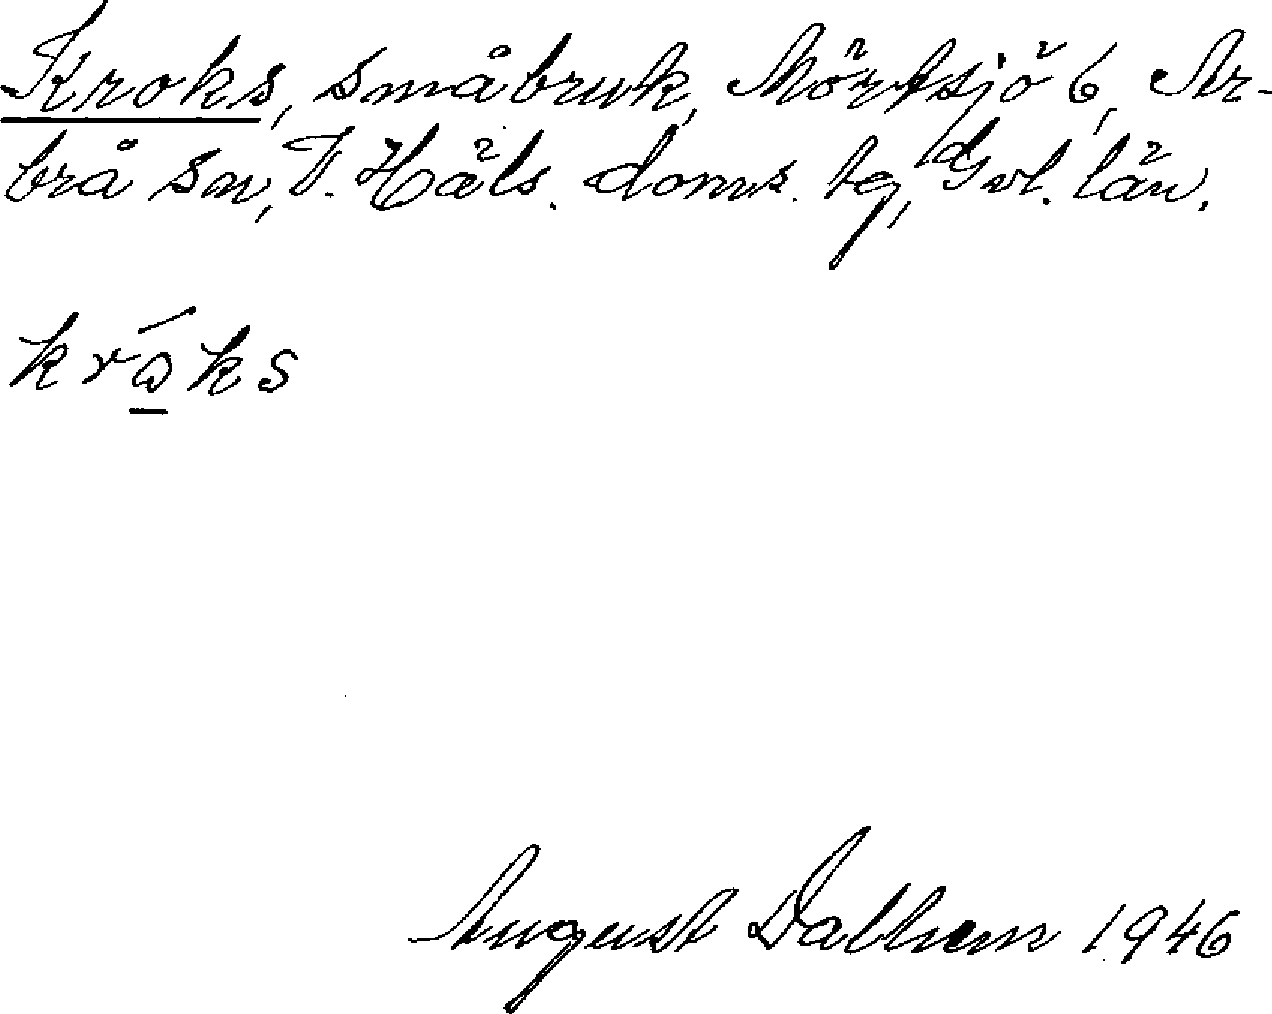 Kroks, småbruk, Mörtsjö 6, Ar-
brå sn, V. Häls. doms. tg, Gvl. län.
kråks
August Dalhem 1946